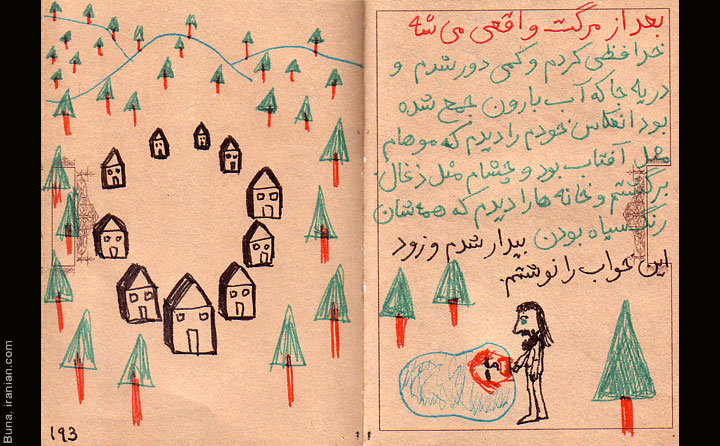 بعد از مرگت واقعی می شه
خدافظی کردم و کمی دور شدم و
در یه جا که آب بارون جمع شده
بود انعکاس خودم را دیدم که موهام
مثل آفتاب بود و چشام مثل ذغال.
برگشتم و خانه ها را دیدم که همه شان
رنگ سیاه بودن بیدار شدم و زود
این خواب را نوشتم.
193
Buna, iranian.com